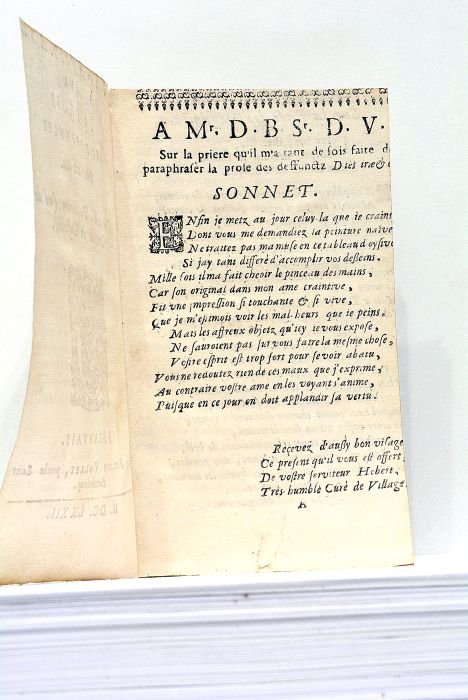 A Mr. D. B. Sr. D. V.
Sur la priere qu'il m'a tant de fois faite d
paraphraser la prose des deffunctz Dies iræ &
SONNET.
ENfin je metz au jour celuy-la que je crains
Dont vous me demandiez la peinture naïve
Ne traitez pas ma muse en ce tableau d'oysive
Si jay tant differé d'accomplir vos desseins.
Mille fois il ma fait cheoir le pinceau des mains,
Car son original dans mon ame craintive,
Fit une impression si touchante & si vive,
Que je m'estimois voir les mal-heurs que je peins.
Mais les affreux objetz qu'icy je vous expose,
Ne sauroient pas sur vous faire la mesme chose,
Vostre esprit est trop fort pour se voir abatu,
Vous ne redoutez rien de ces maux que j'exprime,
Au contraire vostre ame en les voyant s'anime,
Puisque en ce jour on doit applaudir sa vertu.
Recevez d'aussy bon visage
Ce present qu'il vous est offert,
De vostre serviteur Hebert,
Très humble Curé de Village.
A